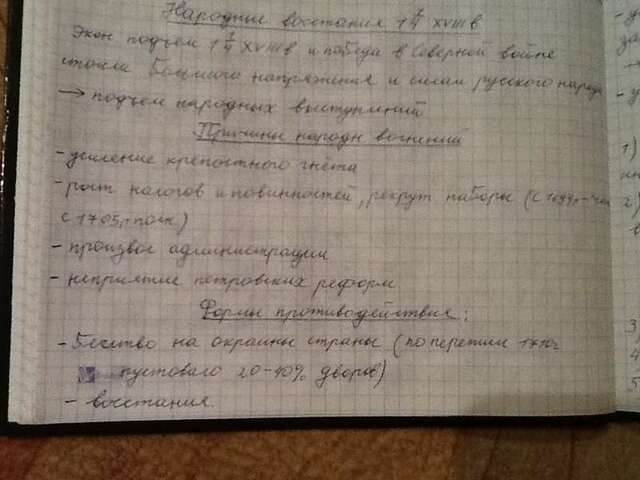 Народные восстания 1 1/4 XVIII в
Экон подъем 1 1/4 XVIII в и победа в Северной войне
стоила большого напряжения и силам русского народа
→ подъем народных выступлений
Причины народн волнений
- усиление крепостного гнёта
- рост налогов и повинностей, рекрут наборы (с 1699г-
с 1705г пост)
- произвол администрации
- неприятие петровских реформ
Формы противодействия:
- Бегство на окраины страны (по переписи 1710г
пустовало 20-40% дворов)
- восстания.
- у
за
→
- у
1)
2)
в
3)
4
5